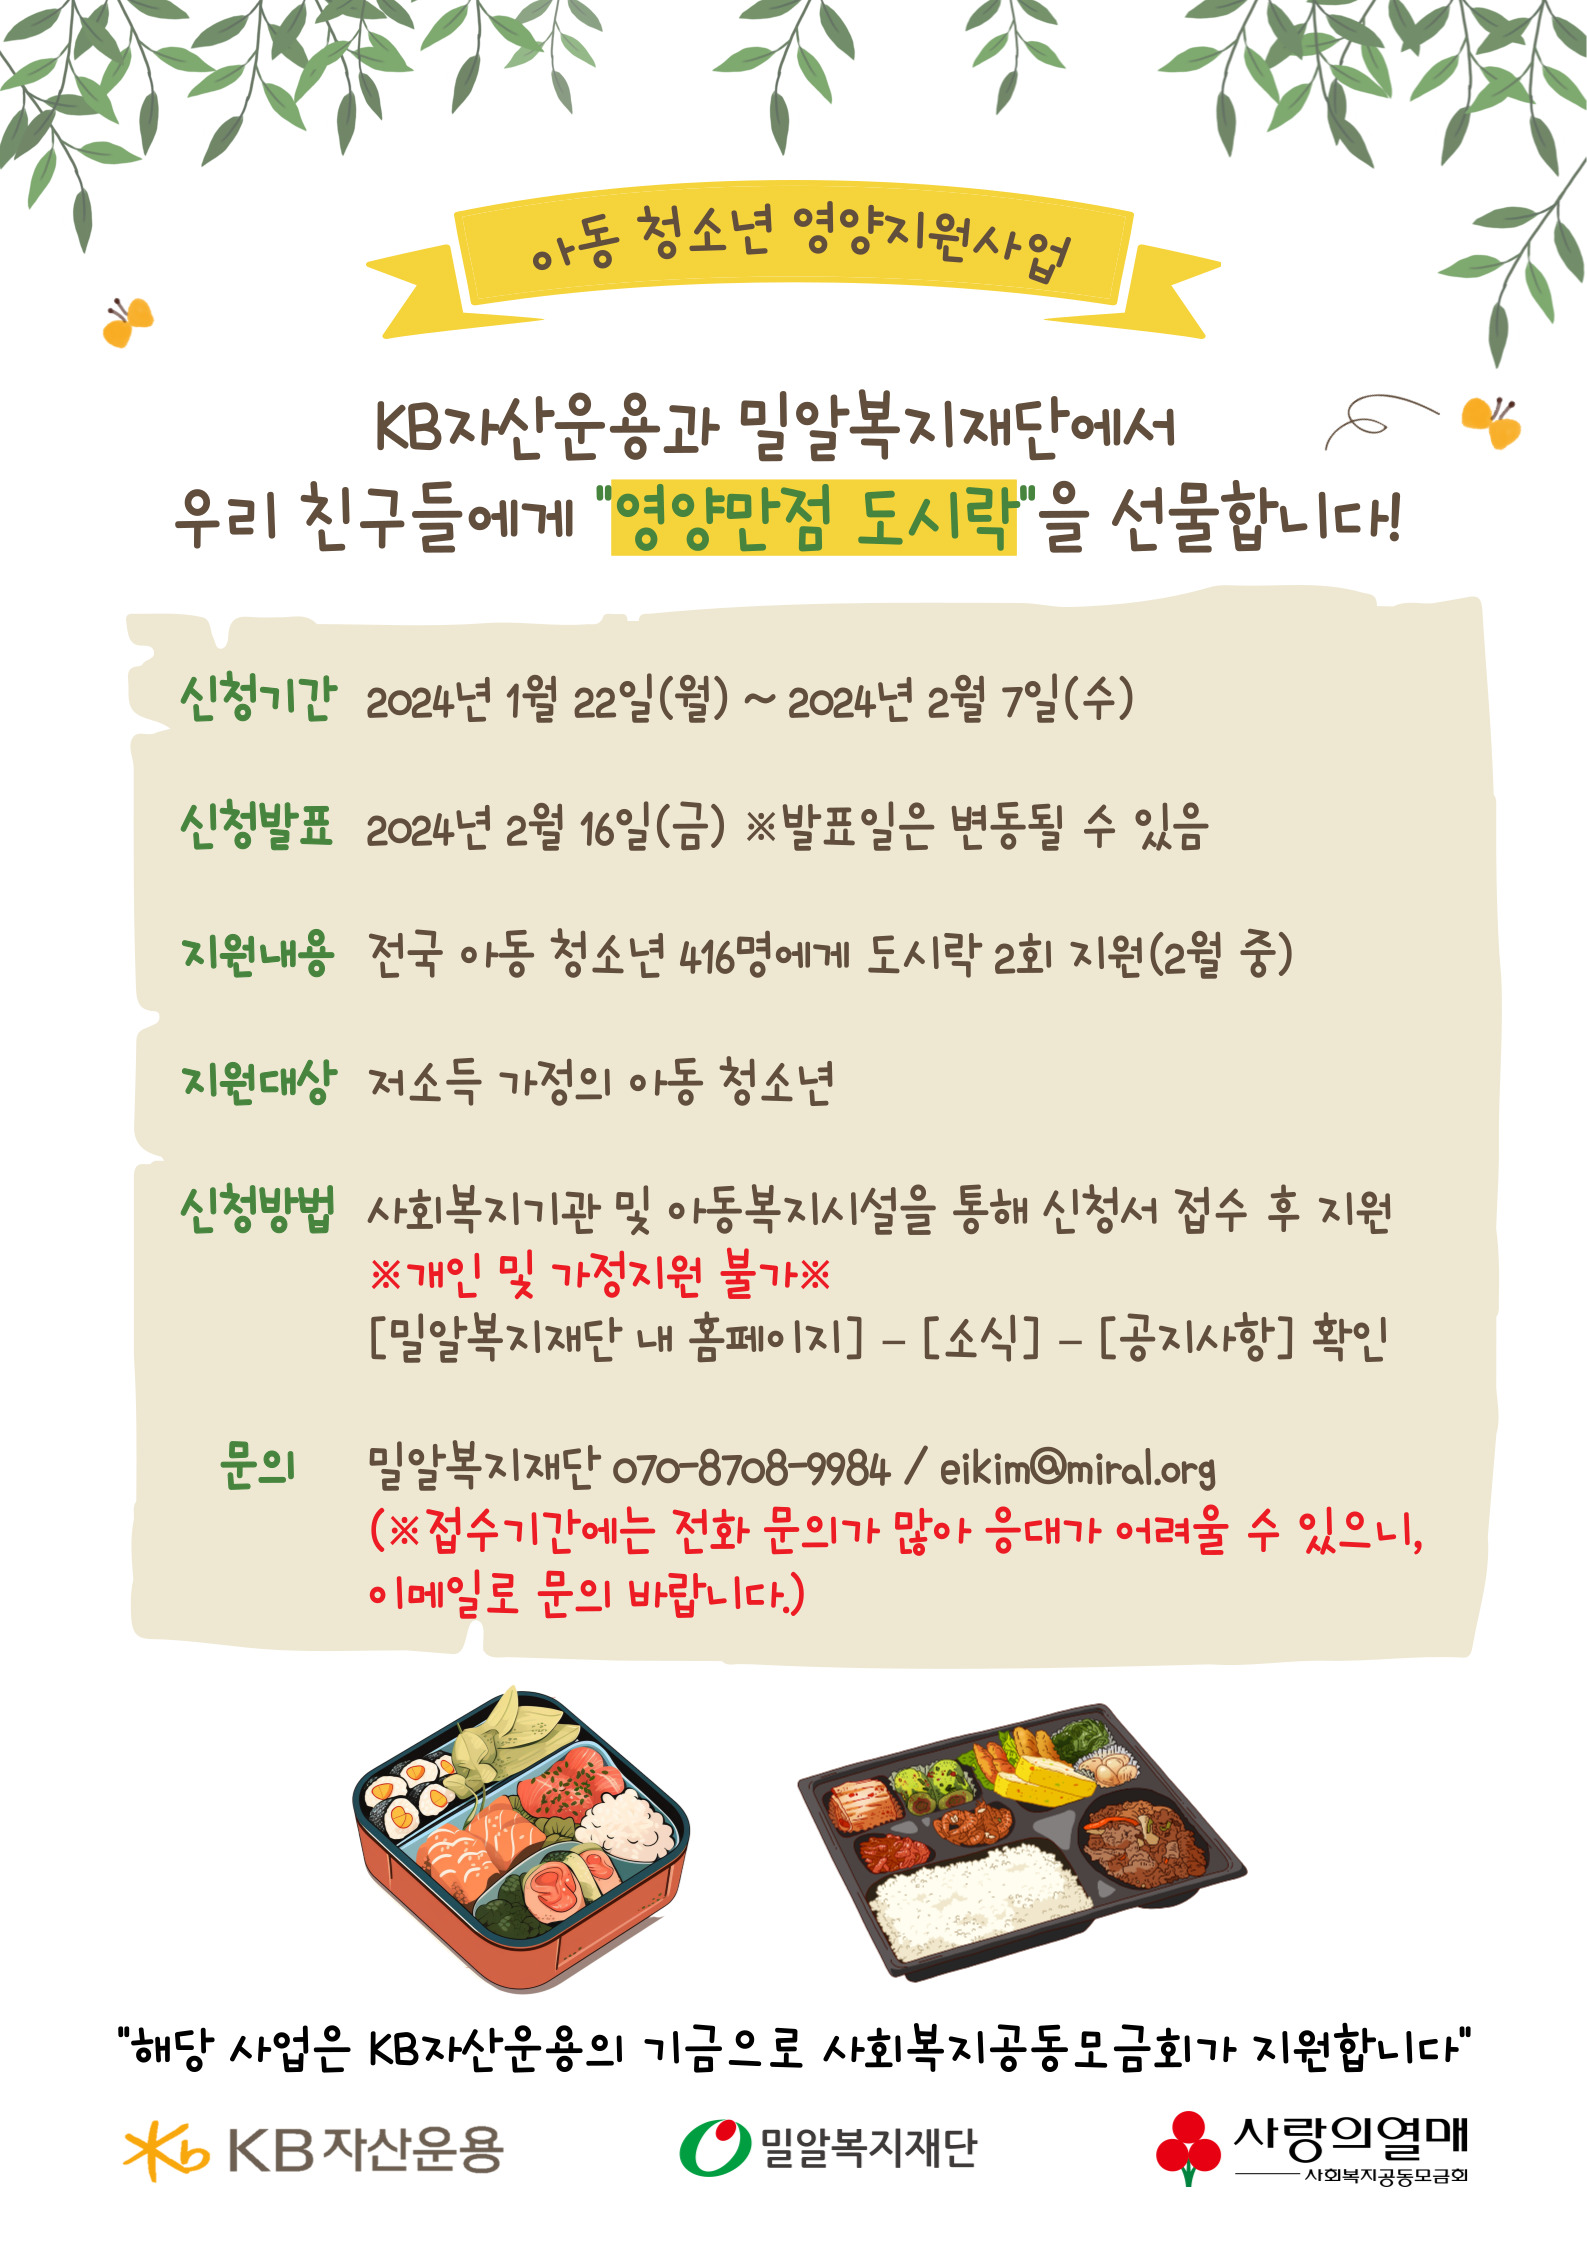 아동 청소년 영양지원사업
KB자산운용과 밀알복지재단에서
우리 친구들에게 "영양만점 도시락"을 선물합니다!
신청기간 2024년 1월 22일(월) ~ 2024년 2월 7일(수)
신청발표 2024년 2월 16일(금) ※발표일은 변동될 수 있음
지원내용 전국 아동 청소년 416명에게 도시락 2회 지원(2월 중)
지원대상 저소득 가정의 아동 청소년
신청방법 사회복지기관 및 아동복지시설을 통해 신청서 접수 후 지원
※개인 및 가정지원 불가※
[밀알복지재단 내 홈페이지] – [소식] – [공지사항] 확인
문의 밀알복지재단 070-8708-9984 / eikim@miral.org
(※접수기간에는 전화 문의가 많아 응대가 어려울 수 있으니,
이메일로 문의 바랍니다.)
"해당 사업은 KB자산운용의 기금으로 사회복지공동모금회가 지원합니다"
KB자산운용
밀알복지재단
사랑의열매
사회복지공동모금회